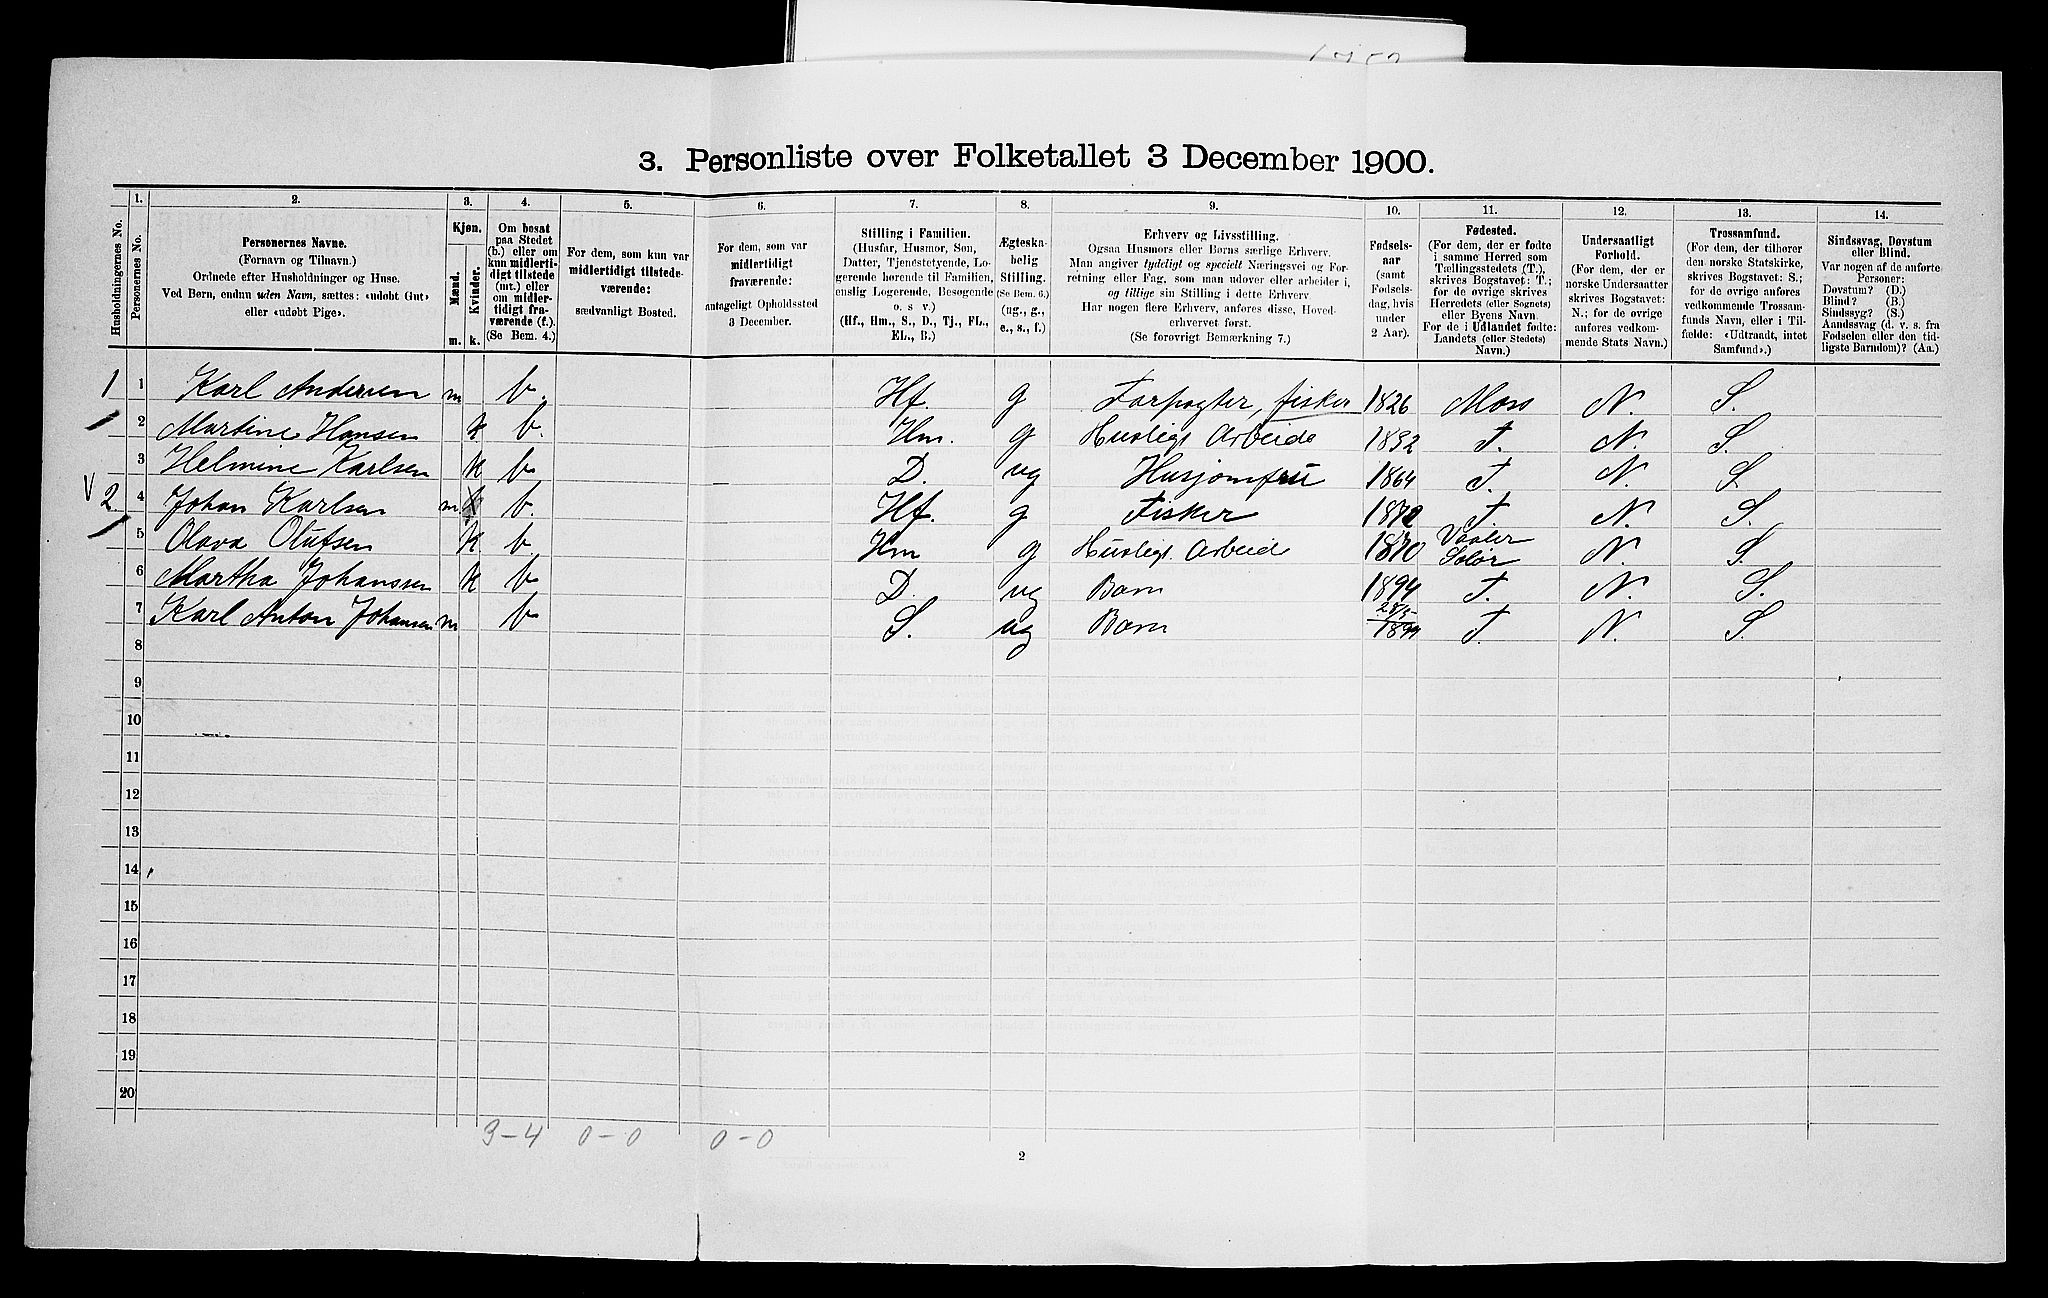 3. Personliste over Folketallet 3 December 1900.
Husholdningernes No.
1.
Personernes No.
2.
Personernes Navne.
(Fornavn og Tilnavn.)
Ordnede efter Husholdninger og Huse.
Ved Børn, endnu uden Navn, sættes: «udøbt Gut»
eller «udøbt Pige».
3.
Kjøn.
Mænd.
Kvinder.
m. k.
4.
Om bosat
paa Stedet
(b.) eller om
kun midlerti-
digt tilstede
(mt.) eller
om midler-
tidigt fra-
værende (f.).
(Se Bem. 4.)
5.
For dem, som kun var
midlertidigt tilstede-
værende:
sædvanligt Bosted.
6.
For dem, som var
midlertidigt
fraværende:
antageligt Opholdssted
3 December.
7.
Stilling i Familien.
(Husfar, Husmor, Søn,
Datter, Tjenestetyende, Lo-
gerende hørende til Familien,
enslig Logerende, Besøgende
o. s v.)
(Hf., Hm., S., D., Tj., FL.,
EL., B.)
8.
Ægteska-
belig
Stilling.
(Se Bem. 6.)
(ug., g.,
e., s., f.)
9.
Erhverv og Livsstilling.
Ogsaa Husmors eller Børns særlige Erhverv.
Man angiver tydeligt og specielt Næringsvei og For-
retning eller Fag, som man udøver eller arbeider i,
og tillige sin Stilling i dette Erhverv
Har nogen flere Erhverv, anføres disse, Hoved-
erhvervet først.
(Se forøvrigt Bemærkning 7.)
10.
Fødsels-
aar
(samt
Fødsels-
dag, hvis
under
2 Aar).
11.
Fødested.
(For dem, der er fødte
i samme Herred som
Tællingsstedets (T.),
skrives Bogstavet: T.;
for de øvrige skrives
Herredets (eller Sognets)
eller Byens Navn.
For de i Udlandet fødte:
Landets (eller Stedets)
Navn.)
12.
Undersaatligt
Forhold.
(For dem, der er
norske Undersaatter
skrives Bogstavet:
N.; for de øvrige
anføres vedkom-
mende Stats Navn.)
13.
Trossamfund.
(For dem, der tilhører
den norske Statskirke,
skrives Bogstavet: S.;
for de øvrige anføres
vedkommende Trossam-
funds Navn, eller i Til-
fælde: «Udtraadt, intet
Samfund».)
14.
Sindssvag, Døvstum
eller Blind.
Var nogen af de anførte
Personer:
Døvstum? (D.)
Blind? (B.)
Sindssyg? (S.)
Aandssvag (d. v. s. fra
Fødselen eller den tid-
ligste Barndom)? (Aa.)
1 1 Karl Andersen m b. Hf. g Forpagter, fisker 1826 Moss N. S.
2 Martine Hansen k b. Hm. g Husligt Arbeide 1832 T. N. S.
3 Helmine Karlsen k b D. ug Husjomfru 1864 T. N. S.
2 4 Johan Karlsen m b. Hf. g Fisker 1872 T. N. S.
5 Olava Olufsen k b Hm g Husligt Arbeid 1870 Vaaler Solør N. S.
6 Martha Johanssen k b D. ug Barn 1894 T. N. S.
7 Karl Anton Johansen m b S. ug Barn 1899 T. N. S
8
9
10
11
12
13
14
15
16
17
18
19
20
3-4 0-0 0-0
2